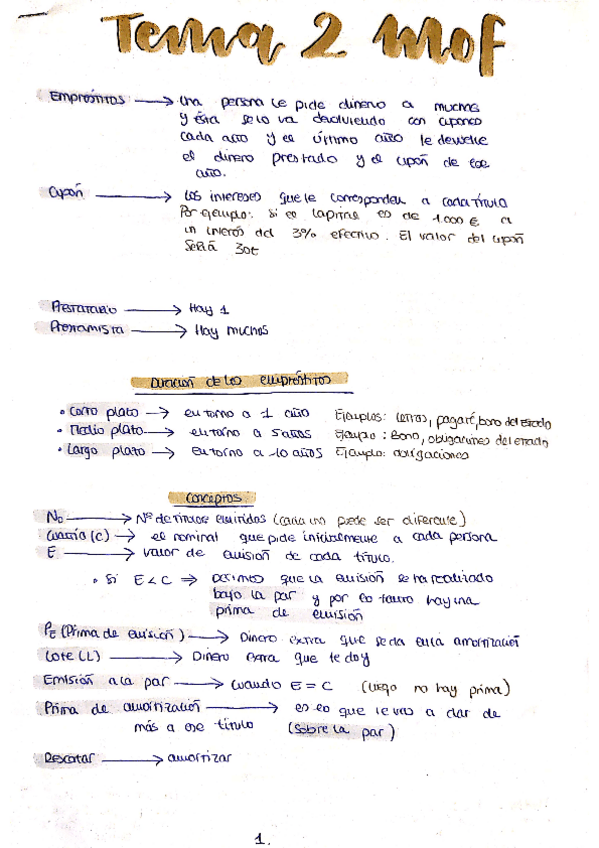 Tema 2 MOF
Empréstitos → Una persona le pide dinero a muchas
y ésta se lo va devolviendo con cupones
cada año y el último año le devuelve
el dinero prestado y el cupón de ese
año.
Cupón → Los intereses que le corresponden a cada título
Por ejemplo: si es la prima es de 1.000 € a
un interés del 3% efectivo. El valor del cupón
Sería 30€
Prestatario → Hay 1
Prestamista → Hay muchos
Duración de los empréstitos
• Corto plazo → en torno a 1 año Ejemplos: letras, pagaré, bono del estado
• Medio plazo → en torno a 5 años Ejemplo: Bono, obligaciones del estado
• Largo plazo → en torno a 10 años Ejemplo: obligaciones
Conceptos
No → Nº de títulos emitidos (cada uno puede ser diferente)
Cuantía (C) → el nominal que pide inicialmente a cada persona
E → valor de emisión de cada título.
• Si E < C ⇒ decimos que la emisión se ha realizado
bajo la par y por lo tanto hay una
prima de emisión
PE (Prima de emisión) → Dinero extra que se da en la amortización
Lote (L) → Dinero extra que te doy
Emisión a la par → cuando E = C (luego no hay prima)
Prima de amortización → es lo que le vas a dar de
más a ese título (sobre la par)
Rescatar → amortizar
1.